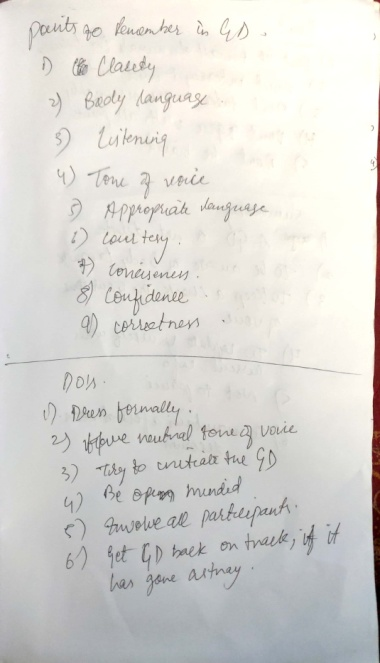 points to Remember in GD.
1) Clarity
2) Body language.
3) Listening
4) Tone of voice
5) Appropriate language
6) courtesy.
7) conciseness.
8) confidence.
9) correctness.
DOs.
1) Dress formally.
2) Have neutral tone of voice
3) Try to initiate the GD
4) Be open minded
5) Involve all participants.
6) Get GD back on track, if it
has gone astray.